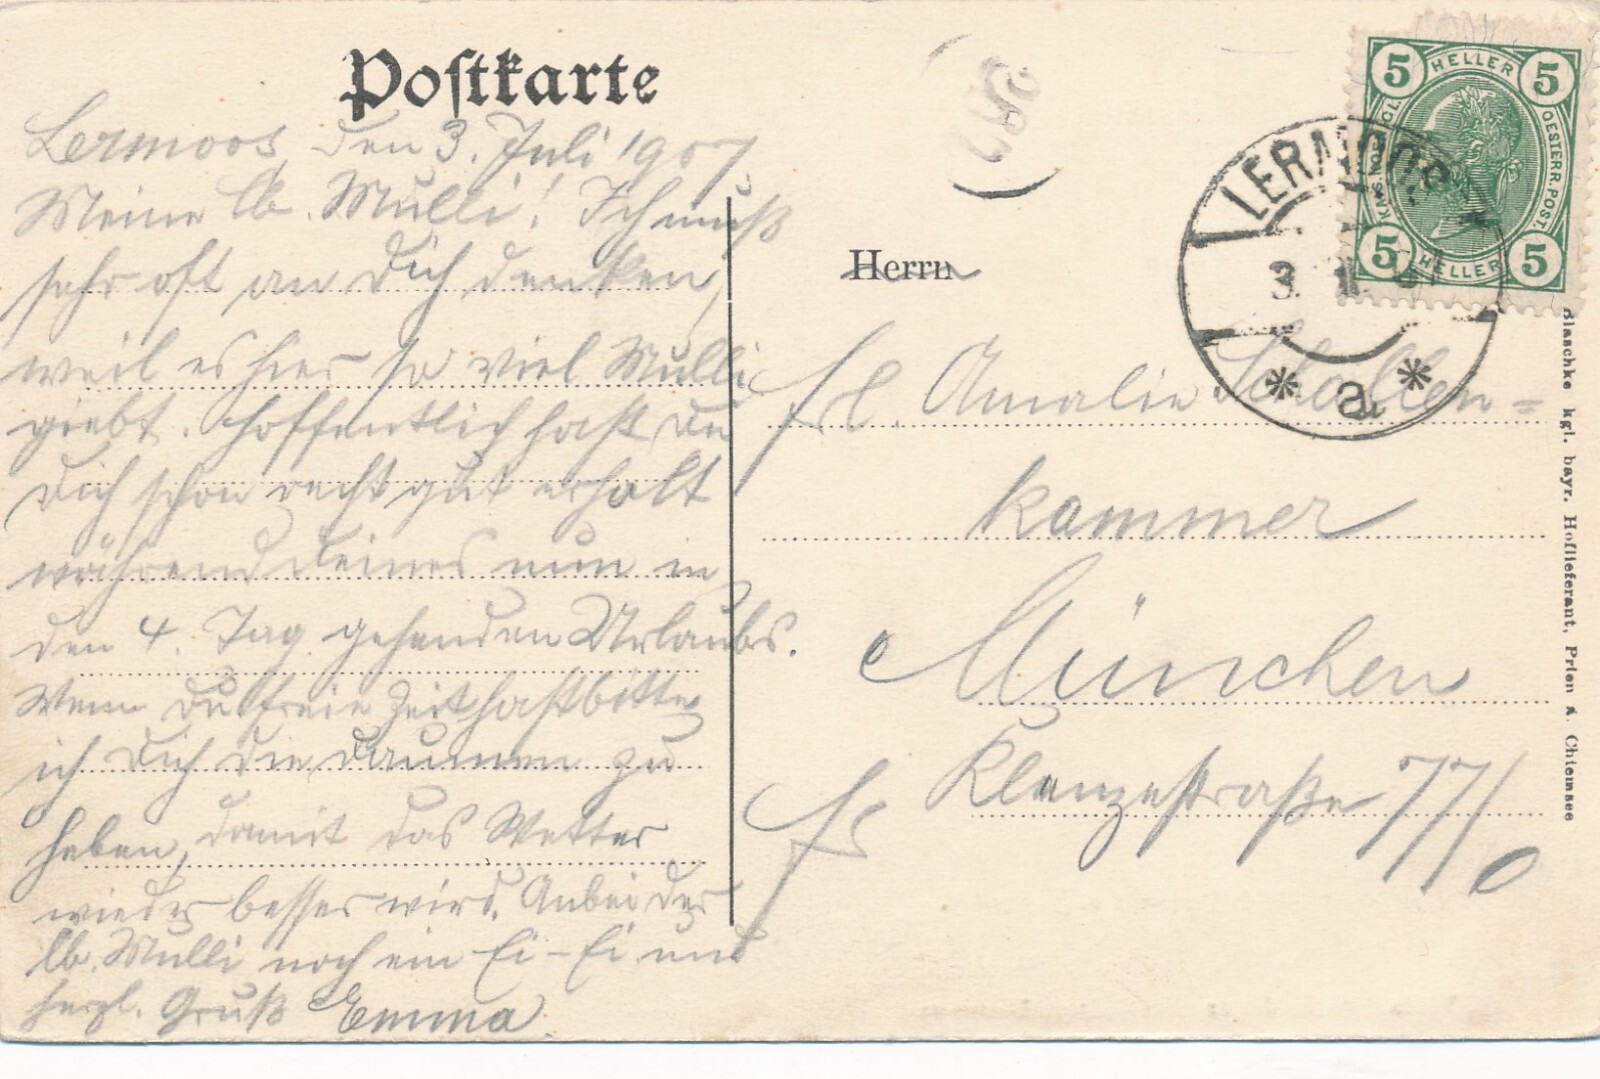 Postkarte
Lermoos, den 3. Juli 1907.
Meine lb. Mulli! Ich muß
sehr oft an Dich denken,
weil es hier so viel Mulli
giebt. Hoffentlich hast Du
Dich schon recht gut erholt
während Deines nun in
den 4. Tag gehenden Urlaubs.
Wenn Du freie Zeit hast bitte
ich Dich die Daumen zu
heben, damit das Wetter
wieder besser wird. Anbei der
lb. Mulli noch ein Ei-Ei und
herzl. Gruß Emma
Herrn
Frl. Amalie Schollen=
kammer
München
Klenzestraße 77/0
5 HELLER 5
KAIS. KÖNIGL. OESTERR. POST.
5 HELLER 5
LERMOOS
3. 07
* a *
Blaschke kgl. bayr. Hoflieferant, Prien a. Chiemsee